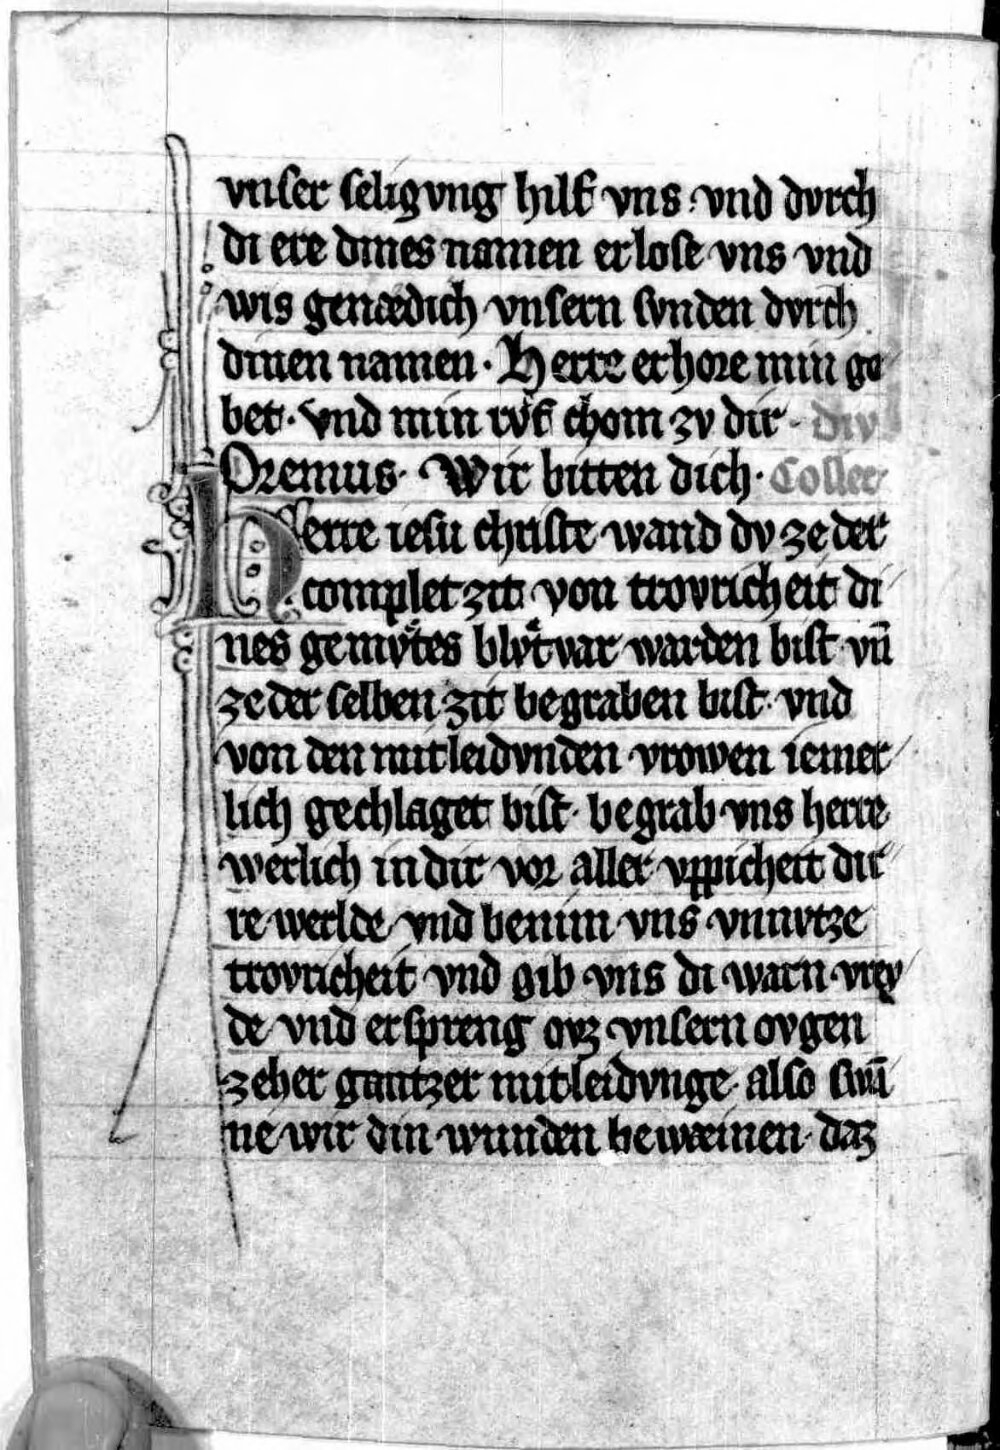 vnser seligvng hilf vns · vnd dvrch
di ere dines namen erlose vns vnd
wis genædich vnsern svnden dvrch
dinen namen · Herre erhore min ge
bet · vnd min rv̊f chom zv dir · div
Oremus · Wir bitten dich · Collec
Herre iesu christe wand dv ze der
complet zit von trovricheit di
nes gemv̊tes blv̊tvar warden bist vn̄
ze der selben zit begraben bist · vnd
von den mitleidvnden vrowen iemer
lich gechlaget bist · begrab vns herre
werlich in dir vor aller vppicheit dir
re werlde vnd benim vns vnnvtze
trovricheit vnd gib vns di warn vrev
de vnd erspreng ovz vnsern ovgen
zeher gantzer mitleidvnge · also swā
ne wir din wunden bewæinen · daz